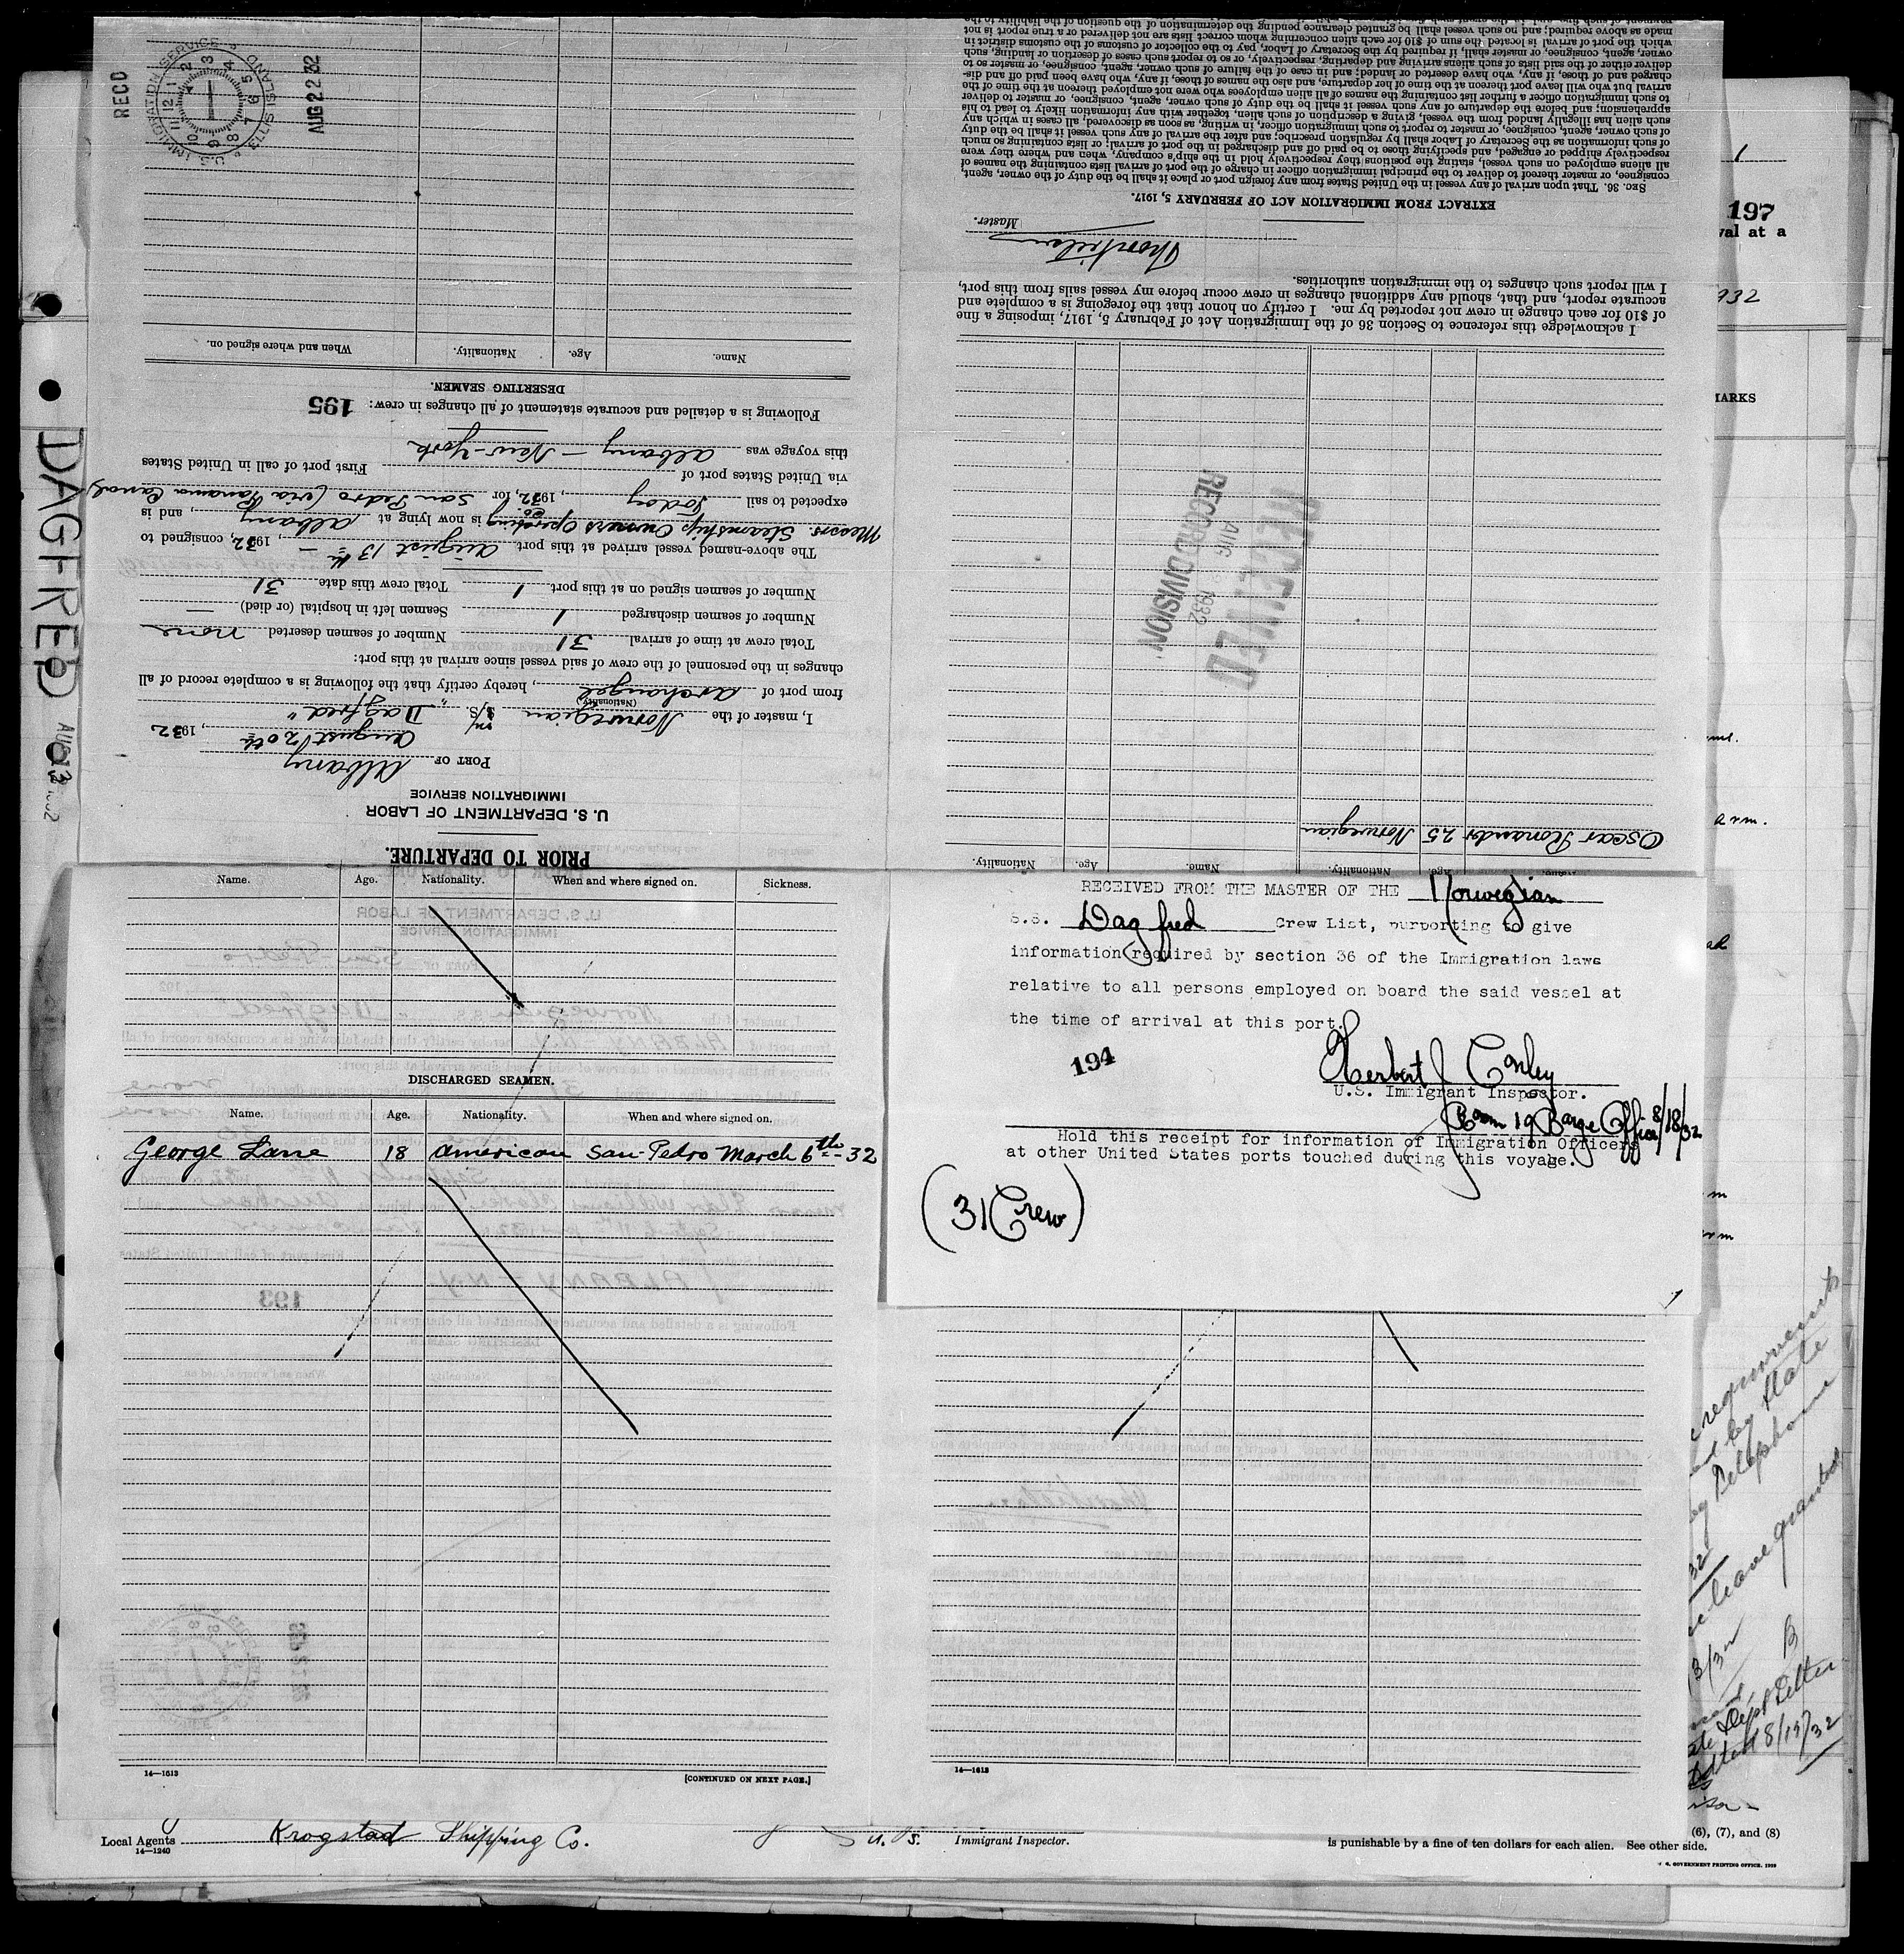 PRIOR TO DEPARTURE.
U. S. DEPARTMENT OF LABOR
IMMIGRATION SERVICE
PORT OF Albany
August 20th, 1932
I, master of the Norwegian M/S. "Dagfred"
(Nationality)
from port of Archangel, hereby certify that the following is a complete record of all
changes in the personnel of the crew of said vessel since arrival at this port:
Total crew at time of arrival 31 Number of seamen deserted none
Number of seamen discharged 1 Seamen left in hospital (or died) —
Number of seamen signed on at this port 1 Total crew this date 31
The above-named vessel arrived at this port August 13th —, 1932, consigned to
Messrs. Steamship Owners Operating Co. is now lying at Albany, and is
expected to sail Today, 1932, for San Pedro (via Panama Canal)
via United States port of First port of call in United States
this voyage was Albany — New-York
Following is a detailed and accurate statement of all changes in crew: 195
DESERTING SEAMEN.
Name. Age. Nationality. When and where signed on.
RECD
U. S. IMMIGRATION SERVICE ELLIS ISLAND
AUG 22 32
Name. Age. Nationality. Name. Age. Nationality.
Oscar 25 Norwegian
RECEIVED
AUG 1932
RECORD DIVISION
I acknowledge this reference to Section 36 of the Immigration Act of February 5, 1917, imposing a fine
of $10 for each change in crew not reported by me. I certify on honor that the foregoing is a complete and
accurate report, and that, should any additional changes in crew occur before my vessel sails from this port,
I will report such changes to the immigration authorities.
Master.
EXTRACT FROM IMMIGRATION ACT OF FEBRUARY 5, 1917.
SEC. 36. That upon arrival of any vessel in the United States from any foreign port or place it shall be the duty of the owner, agent,
consignee, or master thereof to deliver to the principal immigration officer in charge of the port of arrival lists containing the names of
all aliens employed on such vessel, stating the positions they respectively hold in the ship's company, when and where they were
respectively shipped or engaged, and specifying those to be paid off and discharged in the port of arrival; or lists containing so much
of such information as the Secretary of Labor shall by regulation prescribe; and after the arrival of any such vessel it shall be the duty
of such owner, agent, consignee, or master to report to such immigration officer, in writing, as soon as discovered, all cases in which any
such alien has illegally landed from the vessel, giving a description of such alien, together with any information likely to lead to his
apprehension; and before the departure of any such vessel it shall be the duty of such owner, agent, consignee, or master to deliver
to such immigration officer a further list containing the names of all alien employees who were not employed thereon at the time of the
arrival but who will leave port thereon at the time of her departure, and also the names of those, if any, who have been paid off and dis-
charged and of those, if any, who have deserted or landed; and in case of the failure of such owner, agent, consignee, or master so to
deliver either of the said lists of such aliens arriving and departing, respectively, or so to report such cases of desertion or landing, such
owner, agent, consignee, or master shall, if required by the Secretary of Labor, pay to the collector of customs of the customs district in
which the port of arrival is located the sum of $10 for each alien concerning whom correct lists are not delivered or a true report is not
made as above required; and no such vessel shall be granted clearance pending the determination of the question of the liability to the
DAGFRED
AUG 13 1932
Name. Age. Nationality. When and where signed on. Sickness.
DISCHARGED SEAMEN.
Name. Age. Nationality. When and where signed on.
George Lane 18 American San-Pedro March 6th-32
14—1613 [CONTINUED ON NEXT PAGE.]
RECEIVED FROM THE MASTER OF THE Norwegian
S.S. Dagfred Crew List, purporting to give
information required by section 36 of the Immigration laws
relative to all persons employed on board the said vessel at
the time of arrival at this port.
194
Herbert J Conley
U.S. Immigrant Inspector.
Room 19 Barge Office 8/18/32
Hold this receipt for information of Immigration Officers
at other United States ports touched during this voyage.
(31 Crew)
14—1613
Local Agents Krogstad Shipping Co.
14—1240
U. S. Immigrant Inspector.
is punishable by a fine of ten dollars for each alien. See other side.
(6), (7), and (8)
GOVERNMENT PRINTING OFFICE
1
197
val at a
932
MARKS
requirements
by State
Telephone
leave granted
Dept Letter
8/19/32